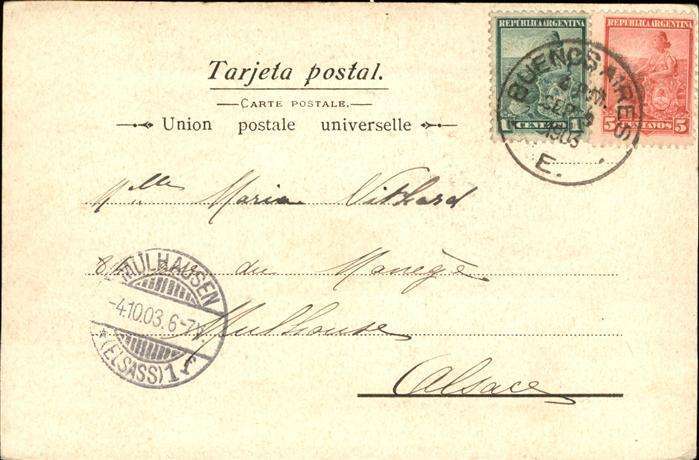 REPÚBLICA ARGENTINA
REPÚBLICA ARGENTINA
1 CENTAVO 1
5 CENTAVOS 5
BUENOS AIRES
SEP
1903
E.
Tarjeta postal.
CARTE POSTALE.
Union postale universelle
Mlle Maria
du Manège
Mulhouse
Alsace
MÜLHAUSEN
-4.10.03.6-7V.
* (ELSASS) 1